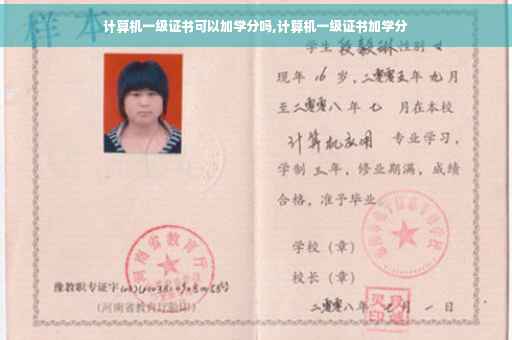 计算机一级证书可以加学分吗,计算机一级证书加学分
样本
学生 段毅琳 性别 女
现年 16 岁，二零零五年 九 月
至二零零八年 七 月在本校
计算机应用 专业学习，
学制 三 年，修业期满，成绩
合格，准予毕业。
学校（章）
校长（章）
二零零八年 七 月 一 日
河南省教育厅
豫教职专证字
（河南省教育厅验印）